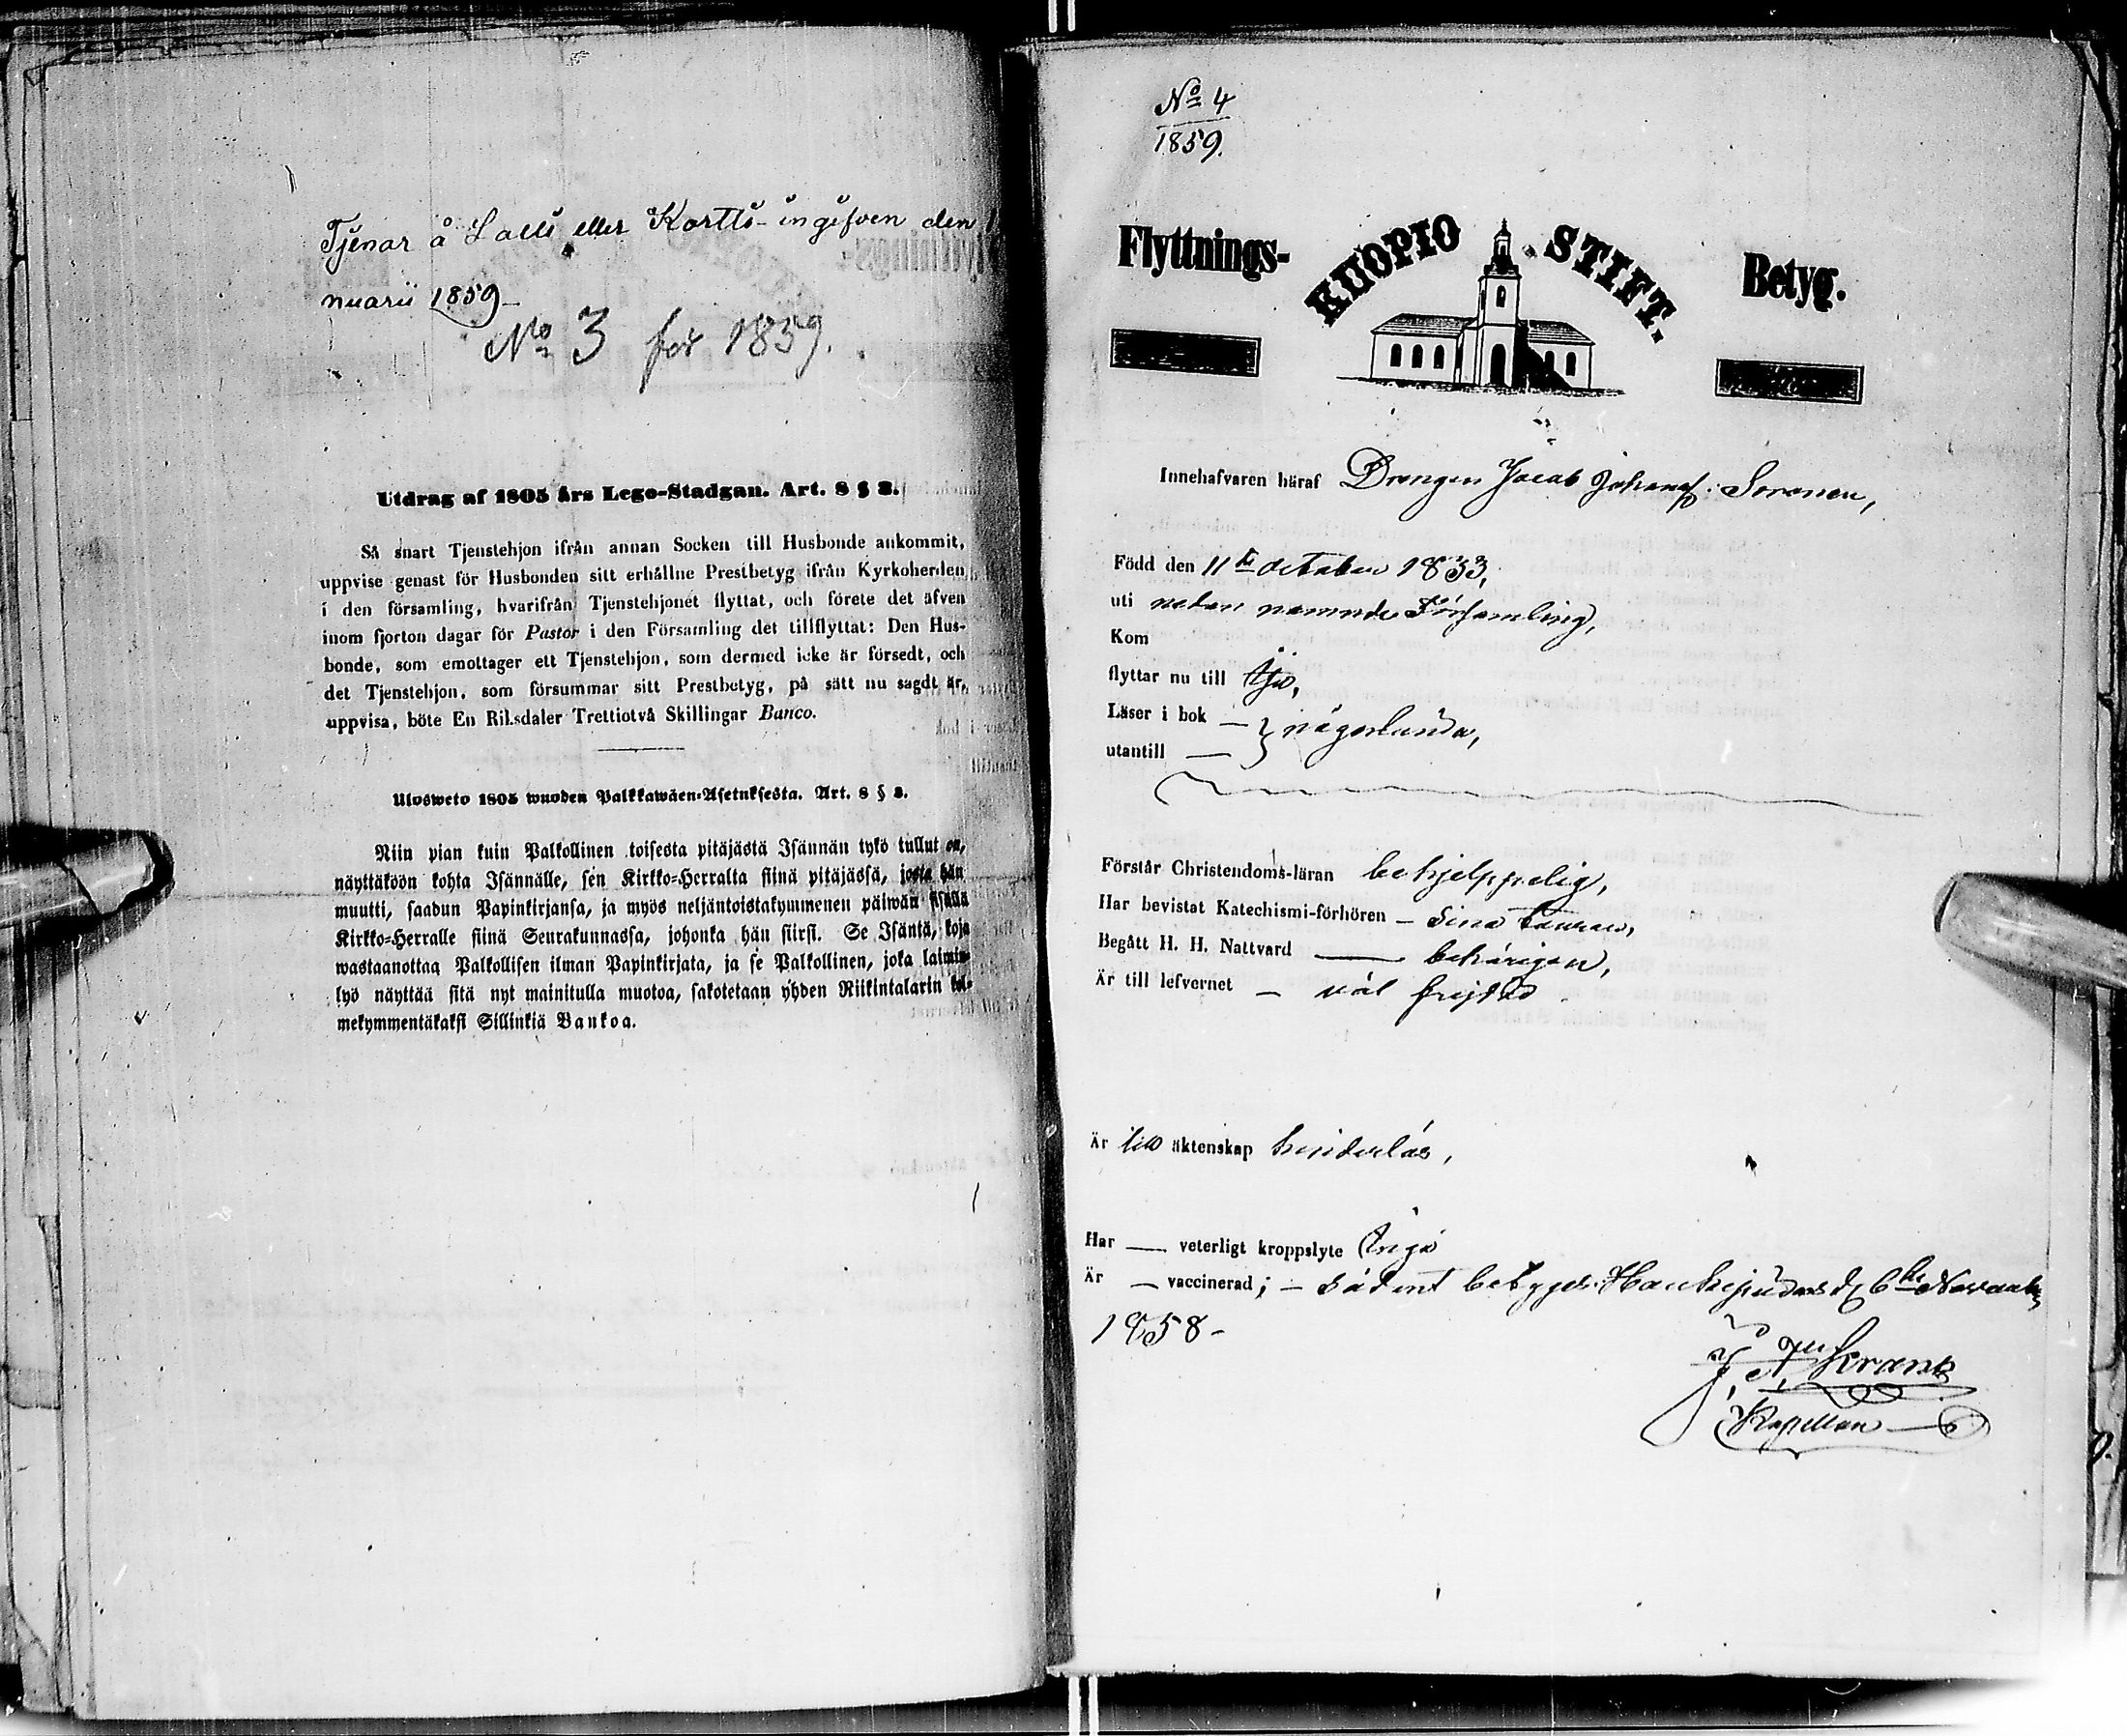 Tjenar å Lalli eller Kortti - ingifven den
nuarii 1859 -
No 3 for 1859.
Utdrag af 1805 års Lego-Stadgan. Art. 8 § 3.
Så snart Tjenstehjon ifrån annan Socken till Husbonde ankommit,
uppvise genast för Husbonden sitt erhållne Prestbetyg ifrån Kyrkoherden
i den församling, hvarifrån Tjenstehjonet flyttat, och förete det äfven
inom fjorton dagar för Pastor i den Församling det tillflyttat: Den Hus-
bonde, som emottager ett Tjenstehjon, som dermed icke är försedt, och
det Tjenstehjon, som försummar sitt Prestbetyg, på sätt nu sagdt är,
uppvisa, böte En Riksdaler Trettiotvå Skillingar Banco.
Ulosweto 1805 wuoden Palkkawäen-Asetuksesta. Art. 8 § 3.
Niin pian kuin Palkollinen toisesta pitäjästä Isännän tykö tullut on,
näyttäköön kohta Isännälle, sen Kirkko-Herralta siinä pitäjässä, josta hän
muutti, saadun Papinkirjansa, ja myös neljäntoistakymmenen päiwän sisällä
Kirkko-Herralle siinä Seurakunnassa, johonka hän siirsi. Se Isäntä, koja
wastaanottaa Palkollisen ilman Papinkirjata, ja se Palkollinen, joka laimin-
lyö näyttää sitä nyt mainitulla muotoa, sakotetaan yhden Riikintalarin kol-
mekymmentäkaksi Sillinkiä Bankoa.
No 4
1859.
Flyttnings- KUOPIO STIFT. Betyg.
Innehafvaren häraf Drengen Jacob Johansf. Soronen,
Född den 11te october 1833,
uti nedan nemnde Församling,
Kom
flyttar nu till Ijo,
Läser i bok — } någorlunda,
utantill —
Förstår Christendoms-läran behjelpelig,
Har bevistat Katechismi-förhören — sina
Begått H. H. Nattvard — behörigen,
Är till lefvernet — väl frejdad
Är till äktenskap hinderlös,
Har — veterligt kroppslyte
Är — vaccinerad; — sådant betygar Haukipudas d. 6te Novemb.
1858 -
J. A. Krank
Kapellan